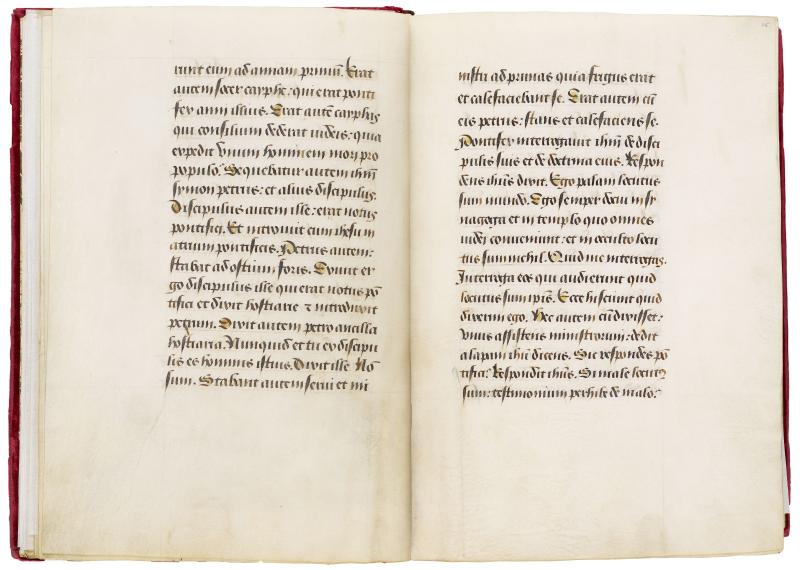 runt eum ad annam primũ. Erat
autem socer cayphe: qui erat ponti
fex anni illius. Erat autẽ cayphas
qui consilium dederat iudeis: quia
expedit vnum hominem mori pro
populo. Sequebatur autem ihm̃
symon petrus: et alius discipulus.
Discipulus autem ille: erat notus
pontifici. Et introiuit cum ihesu in
atrium pontificis. Petrus autem:
stabat ad ostium foris. Exiuit er
go discipulus ille qui erat notus põ
tifici et dixit hostiarie ⁊ introduxit
petrum. Dixit autem petro ancilla
hostiaria. Nunquid et tu ex discipu
lis es hominis istius. Dixit ille Nõ
sum. Stabant autem serui et mi
nistri ad prunas quia frigus erat
et calefaciebant se. Erat autem cũ
eis petrus: stans et calefaciens se.
Pontifex interrogauit ihm̃ de disci
pulis suis et de doctrina eius. Respon
dens ihũs dixit. Ego palam locutus
sum mundo. Ego semper docui in sy
nagoga et in templo quo omnes
iudei conueniunt: et in occulto locu
tus sum nichil. Quid me interrogas.
Interroga eos qui audierunt quid
locutus sum ip̃is. Ecce hi sciunt quid
dixerim ego. Hec autem cũ dixisset:
vnus assistens ministrorum: dedit
alapam ihũ dicens. Sic respondes põ
tifici. Respondit ihũs. Si male locutus
sum: testimonium perhibe de malo.